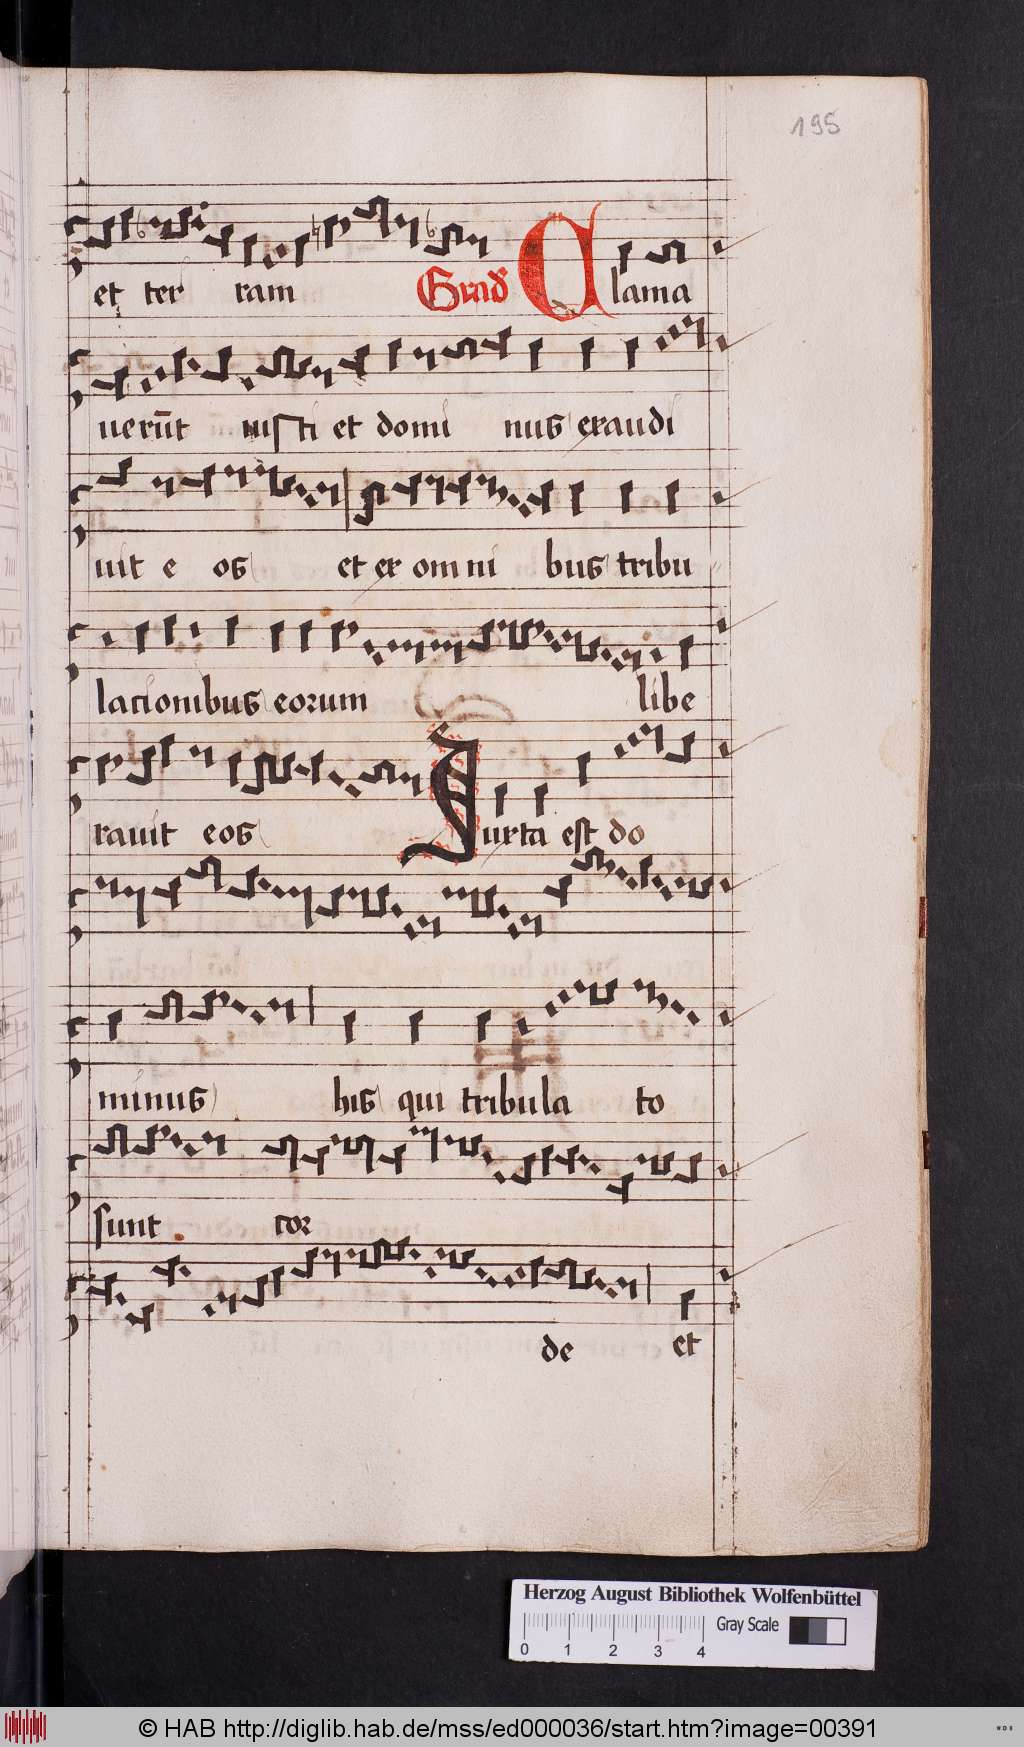 195
et ter ram Grad Clama
uerūt iusti et domi nus exaudi
uit e os et ex omni bus tribu
lacionibus eorum libe
rauit eos Iuxta est do
minus his qui tribula to
sunt cor
de et
Herzog August Bibliothek Wolfenbüttel
Gray Scale
0 1 2 3 4
© HAB http://diglib.hab.de/mss/ed000036/start.htm?image=00391
WDB